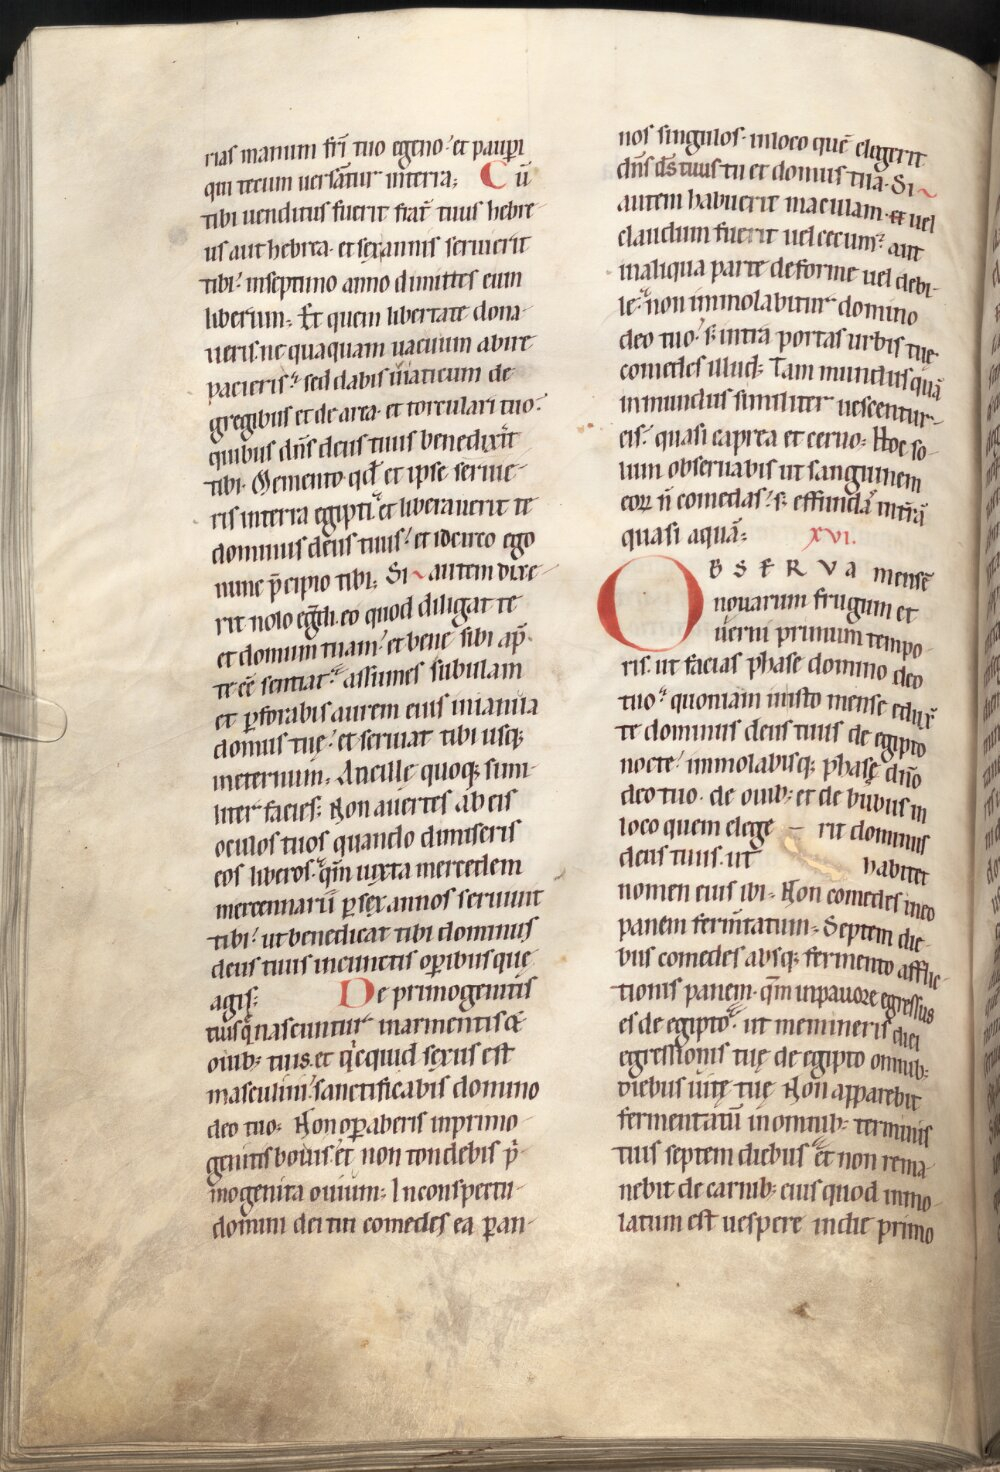 rias manum fri tuo egeno. et paupi
qui tecum uersatur interra; Cū
tibi uenditus fuerit frat tuus hebre-
us aut hebrea. et sex annis seruierit
tibi. inseptimo anno dimittes eum
liberum; Et quem libertate dona-
ueris. ne quaquam uacuum abire
pacieris. sed dabis uiaticum de
gregibus et de area. et torculari tuo.
quibus dn̄s deus tuus benedixit
tibi. Memento qd̄ et ipse seruie-
ris interra egipti. et liberauerit te
dominus deus tuus. et idcirco ego
nunc p̄cipio tibi; Si autem dixe-
rit nolo egdi. eo quod diligat te
et domum tuam. et bene sibi ap̄
te eē sentiat. assumes subulam
et pforabis aurem eius inianua
domus tuę. et seruiat tibi usq;
ineternum; Ancillę quoq; simi-
liter facies; Non auertes ab eis
oculos tuos quando dimiseris
eos liberos. qm̄ iuxta mercedem
mercennarii p sex annos seruiuit
tibi. ut benedicat tibi dominus
deus tuus incunctis opibus quę
agis; De primogenitis
tusq nascuntur inarmentis &
ouib; tuis. et qcquid sexus est
masculini. sanctificabis domino
deo tuo; Non opaberis inprimo-
genitis bouis. et non tondebis p̄-
mogenita ouium; Inconspectu-
domini dei tui comedes ea p an-
nos singulos. inloco quē elegerit
dn̄s ds̄ tuus tu et domus tua. Si
autem habuerit maculam. et uel
claudum fuerit uel cecum. aut
inaliqua parte deforme uel debi-
le. non immolabitur domino
deo tuo. s̄ intra portas urbis tuę
comedes illud; Tam mundus quā
inmundus similiter uescentur-
eis. quasi caprea et ceruo; Hoc so-
lum obseruabis ut sanguinem
eoꝝ n̄ comedas. s̄ effundā interrā
quasi aquā; xvi.
OBSERVA mensē
nouarum frugum et
uerni primum tempo-
ris. ut facias phase domino deo
tuo. quoniam inisto mense edux̄
te dominus deus tuus de egipto
nocte. immolabisq; phasę dn̄o
deo tuo. de ouib; et de bubus in
loco quem elege – rit dominus
deus tuus. ut habitet
nomen eius ibi; Non comedes ineo
panem fermtatum; Septem die-
bus comedes absq; fermento afflic-
tionis panem. qm̄ inpauore egressus
es de egipto. ut memineris diei
egressionis tuę de egipto omnib;
diebus uitę tuę Non apparebit
fermentatū inomnib; terminis
tuis septem diebus et non rema-
nebit de carnib; eius quod immo-
latum est uespere indie primo